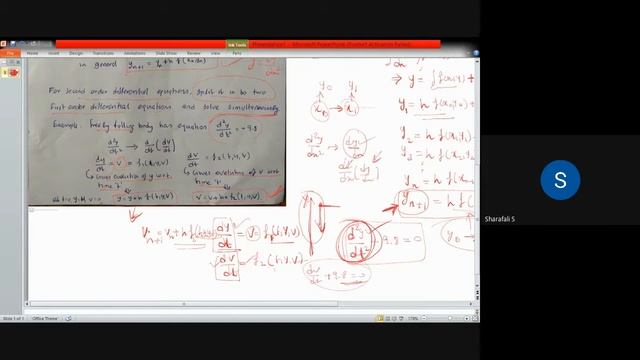 Ink Tools
Presentation1 - Microsoft PowerPoint (Product Activation Failed)
Design Transitions Animations Slide Show Review View Format Pens
in general y_{n+1} = y_n + h f(x_n, y_n)
For second order differential equations, split it in to two
First order differential equations and solve simultaneously
Example: Freely falling body has equation d²y/dt² = -9.8
d²y/dt² → d/dt (dy/dt)
dy/dt = v = f₁(t, y, v)
dv/dt = f₂(t, y, v)
↳ Gives evolution of y with time 't'
↳ Gives evolution of v with time 't'
y = y + h f₁(t, y, v)
v = v + h f₂(t, y, v)
y₀ y₁
x₀ → x₁
d²y/dx² → dy/dx
d/dx (dy/dx)
⇒ y =
y₁ = h f(x₀, y₀) +
y₂ = h f(x₁,
y₃ = h f(x₂,
y_n = h f(
y_{n+1} = h f(
v_{n+1} = v_n + h f₂(
dy/dt = v = f₁(t, y, v)
dv/dt = f₂(t, y, v)
d²y/dt² + 9.8 = 0
dv/dt + 9.8 = 0
y₀ →
S
Sharafali S
Slide 1 of 1 "Office Theme" 178%